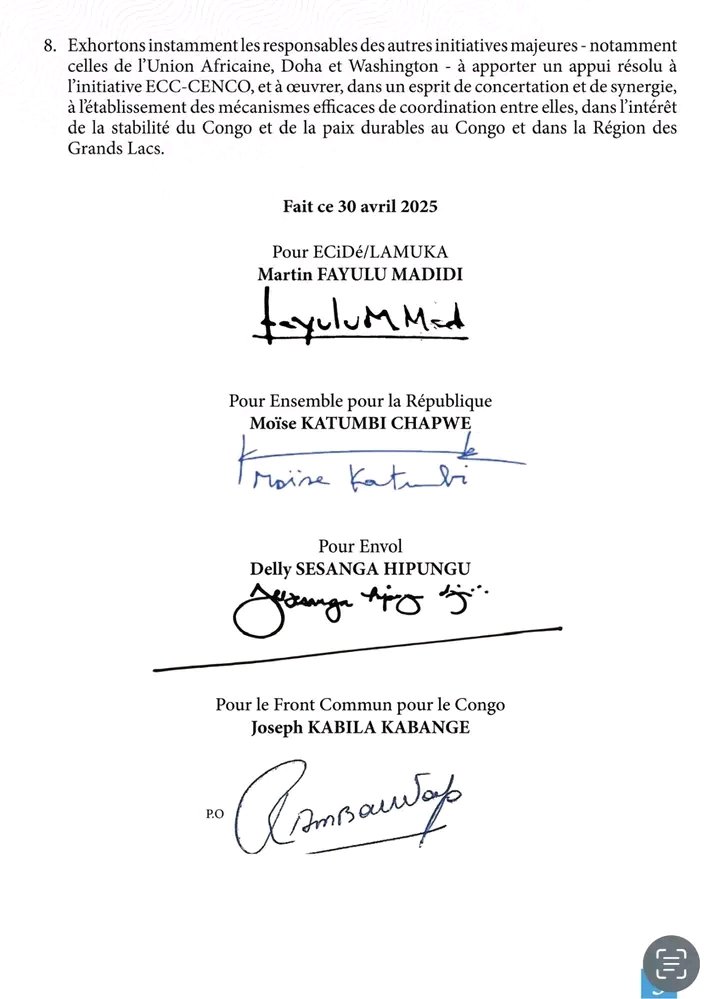 8. Exhortons instamment les responsables des autres initiatives majeures - notamment
celles de l'Union Africaine, Doha et Washington - à apporter un appui résolu à
l'initiative ECC-CENCO, et à œuvrer, dans un esprit de concertation et de synergie,
à l'établissement des mécanismes efficaces de coordination entre elles, dans l'intérêt
de la stabilité du Congo et de la paix durables au Congo et dans la Région des
Grands Lacs.
Fait ce 30 avril 2025
Pour ECiDé/LAMUKA
Martin FAYULU MADIDI
Pour Ensemble pour la République
Moïse KATUMBI CHAPWE
Moïse Katumbi
Pour Envol
Delly SESANGA HIPUNGU
Pour le Front Commun pour le Congo
Joseph KABILA KABANGE
P.O